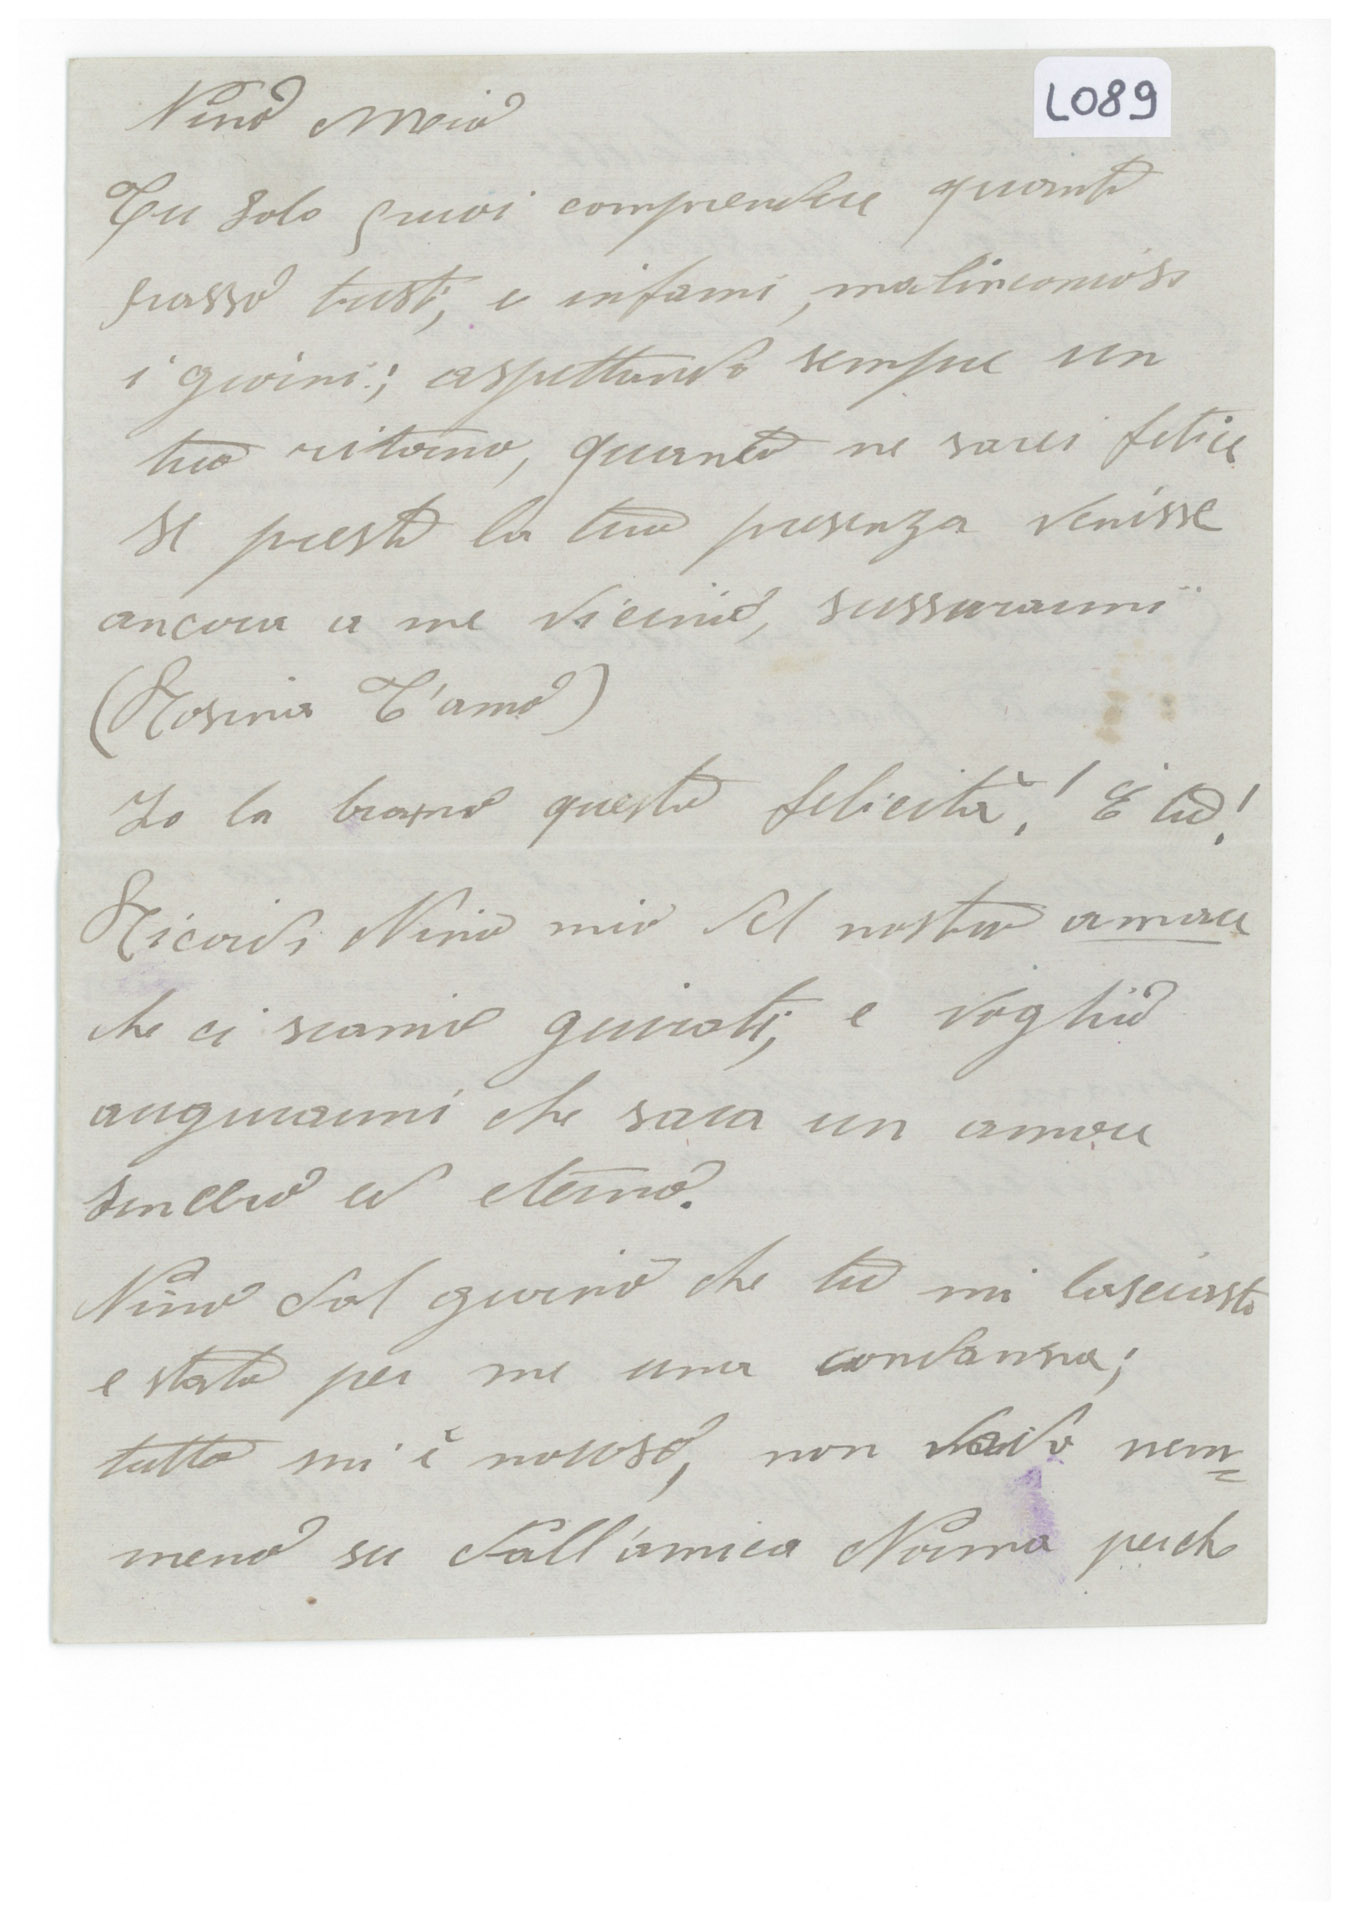 L089
Nino Moio
Tu solo puoi comprendere quanto
passo tristi, e infami, malinconiosi
i giorni; aspettando sempre un
tuo ritorno, quanto ne sarei felice
se presto la tua presenza venisse
ancora a me vicino, sussurarmi
(Rosina T'amo)
Io la bramo questa felicità! E tu!
Ricordi Nino mio del nostro amore
che ci siamo giurati, e voglio
augurarmi che sara un amore
sincero ed eterno.
Nino dal giorno che tu mi lasciasti
e stata per me una condanna;
tutto mi è noioso, non vado nem=
meno su dall'amica Norma perche